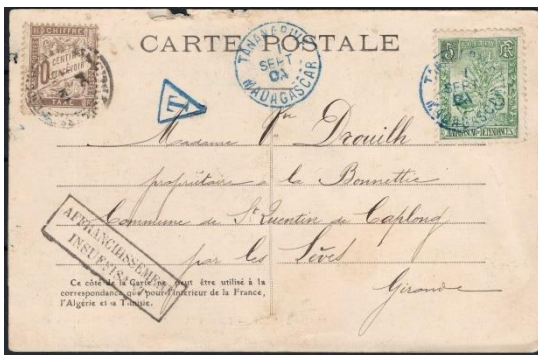 CARTE POSTALE
CHIFFRE
10 CENTIMES
À PERCEVOIR
TAXE
TANANARIVE
1
SEPT
04
MADAGASCAR
5 c
MADAGASCAR-DÉPENDANCES
T
Madame Vve Drouilh
propriétaire à la Bonnettie
Commune de St Quentin de Caplong
par les Lèves
Gironde
AFFRANCHISSEMENT
INSUFFISANT
Ce côté de la Carte ne peut être utilisé à la
correspondance que pour l'intérieur de la France,
l'Algérie et la Tunisie.